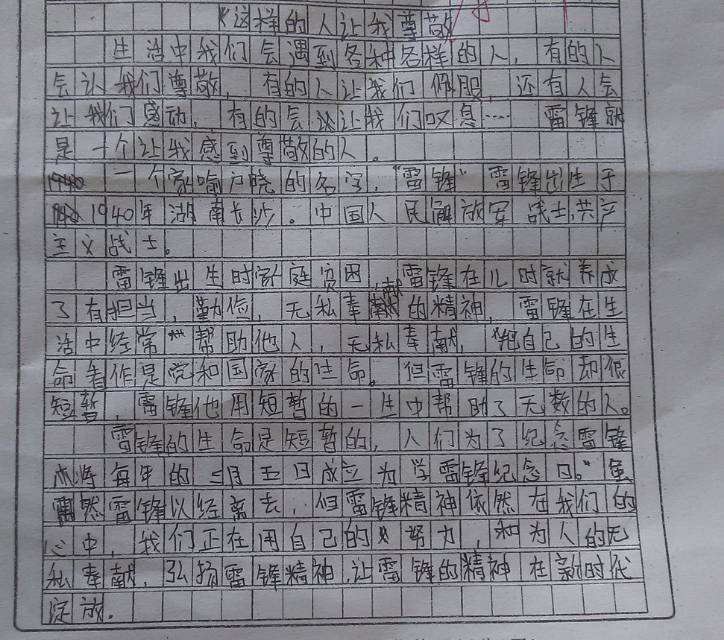 《这样的人让我尊敬
生活中我们会遇到各种各样的人，有的人
会让我们尊敬，有的人让我们佩服，还有人会
让我们感动，有的会让我们叹息……雷锋就
是一个让我感到尊敬的人。
一个家喻户晓的名字，“雷锋”雷锋出生于
1940年湖南长沙。中国人民解放军战士，共产
主义战士。
雷锋出生时家庭贫困，雷锋在儿时就养成
了有担当，勤俭，无私奉献的精神，雷锋在生
活中经常帮助他人，无私奉献，把自己的生
命看作是党和国家的生命。但雷锋的生命却很
短暂，雷锋他用短暂的一生中帮助了无数的人。
雷锋的生命是短暂的，人们为了纪念雷锋
将每年的3月五日成立为学雷锋纪念日。虽
然雷锋以经离去，但雷锋精神依然在我们的
心中，我们正在用自己的努力，和为人的无
私奉献，弘扬雷锋精神，让雷锋的精神在新时代
绽放.